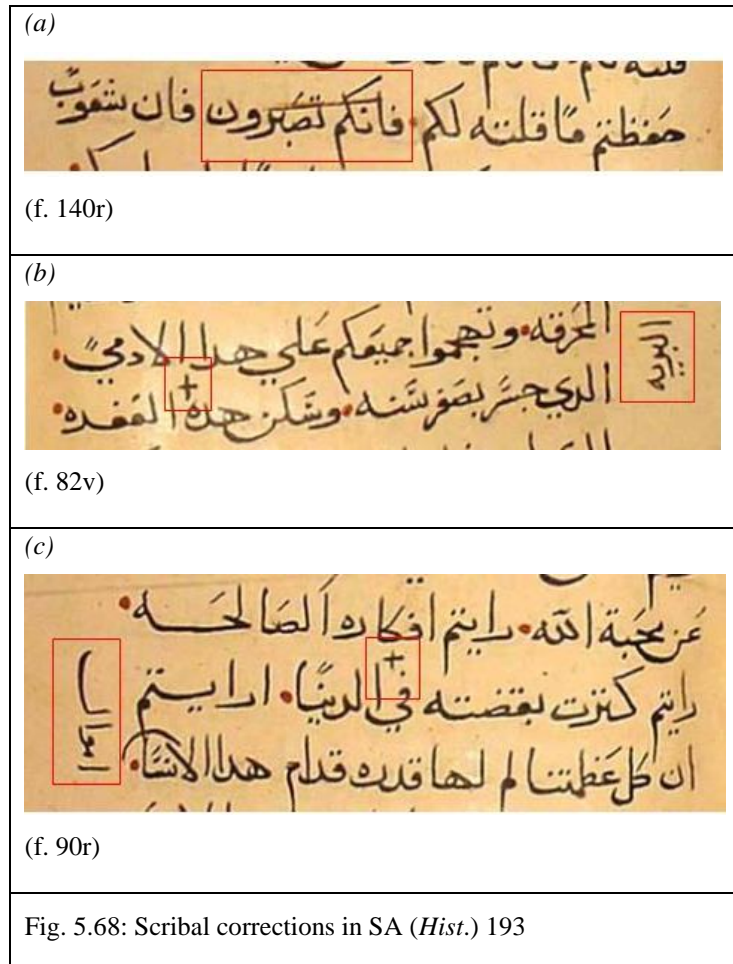 (a)
حفظتم ما قلته لكم• فانكم تصبرون فان شعوب
(f. 140r)
(b)
المحرقه• وتهجموا جميعكم علي هدا الادمي•
البريه
الدي جسر بصغر سنه• وسكن هده
+
(f. 82v)
(c)
عن محبة الله• رايتم افكاره الصالحه•
+
رايتم كنزت بغضته في الدنيا• ارايتم
ان كل عظمتنا لم لها قدره قدام هدا
(f. 90r)
Fig. 5.68: Scribal corrections in SA (Hist.) 193